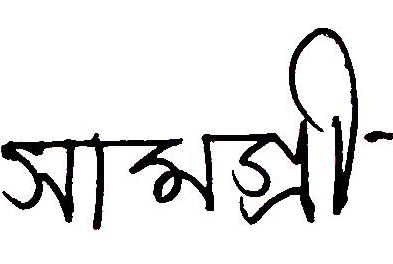 সামগ্রী